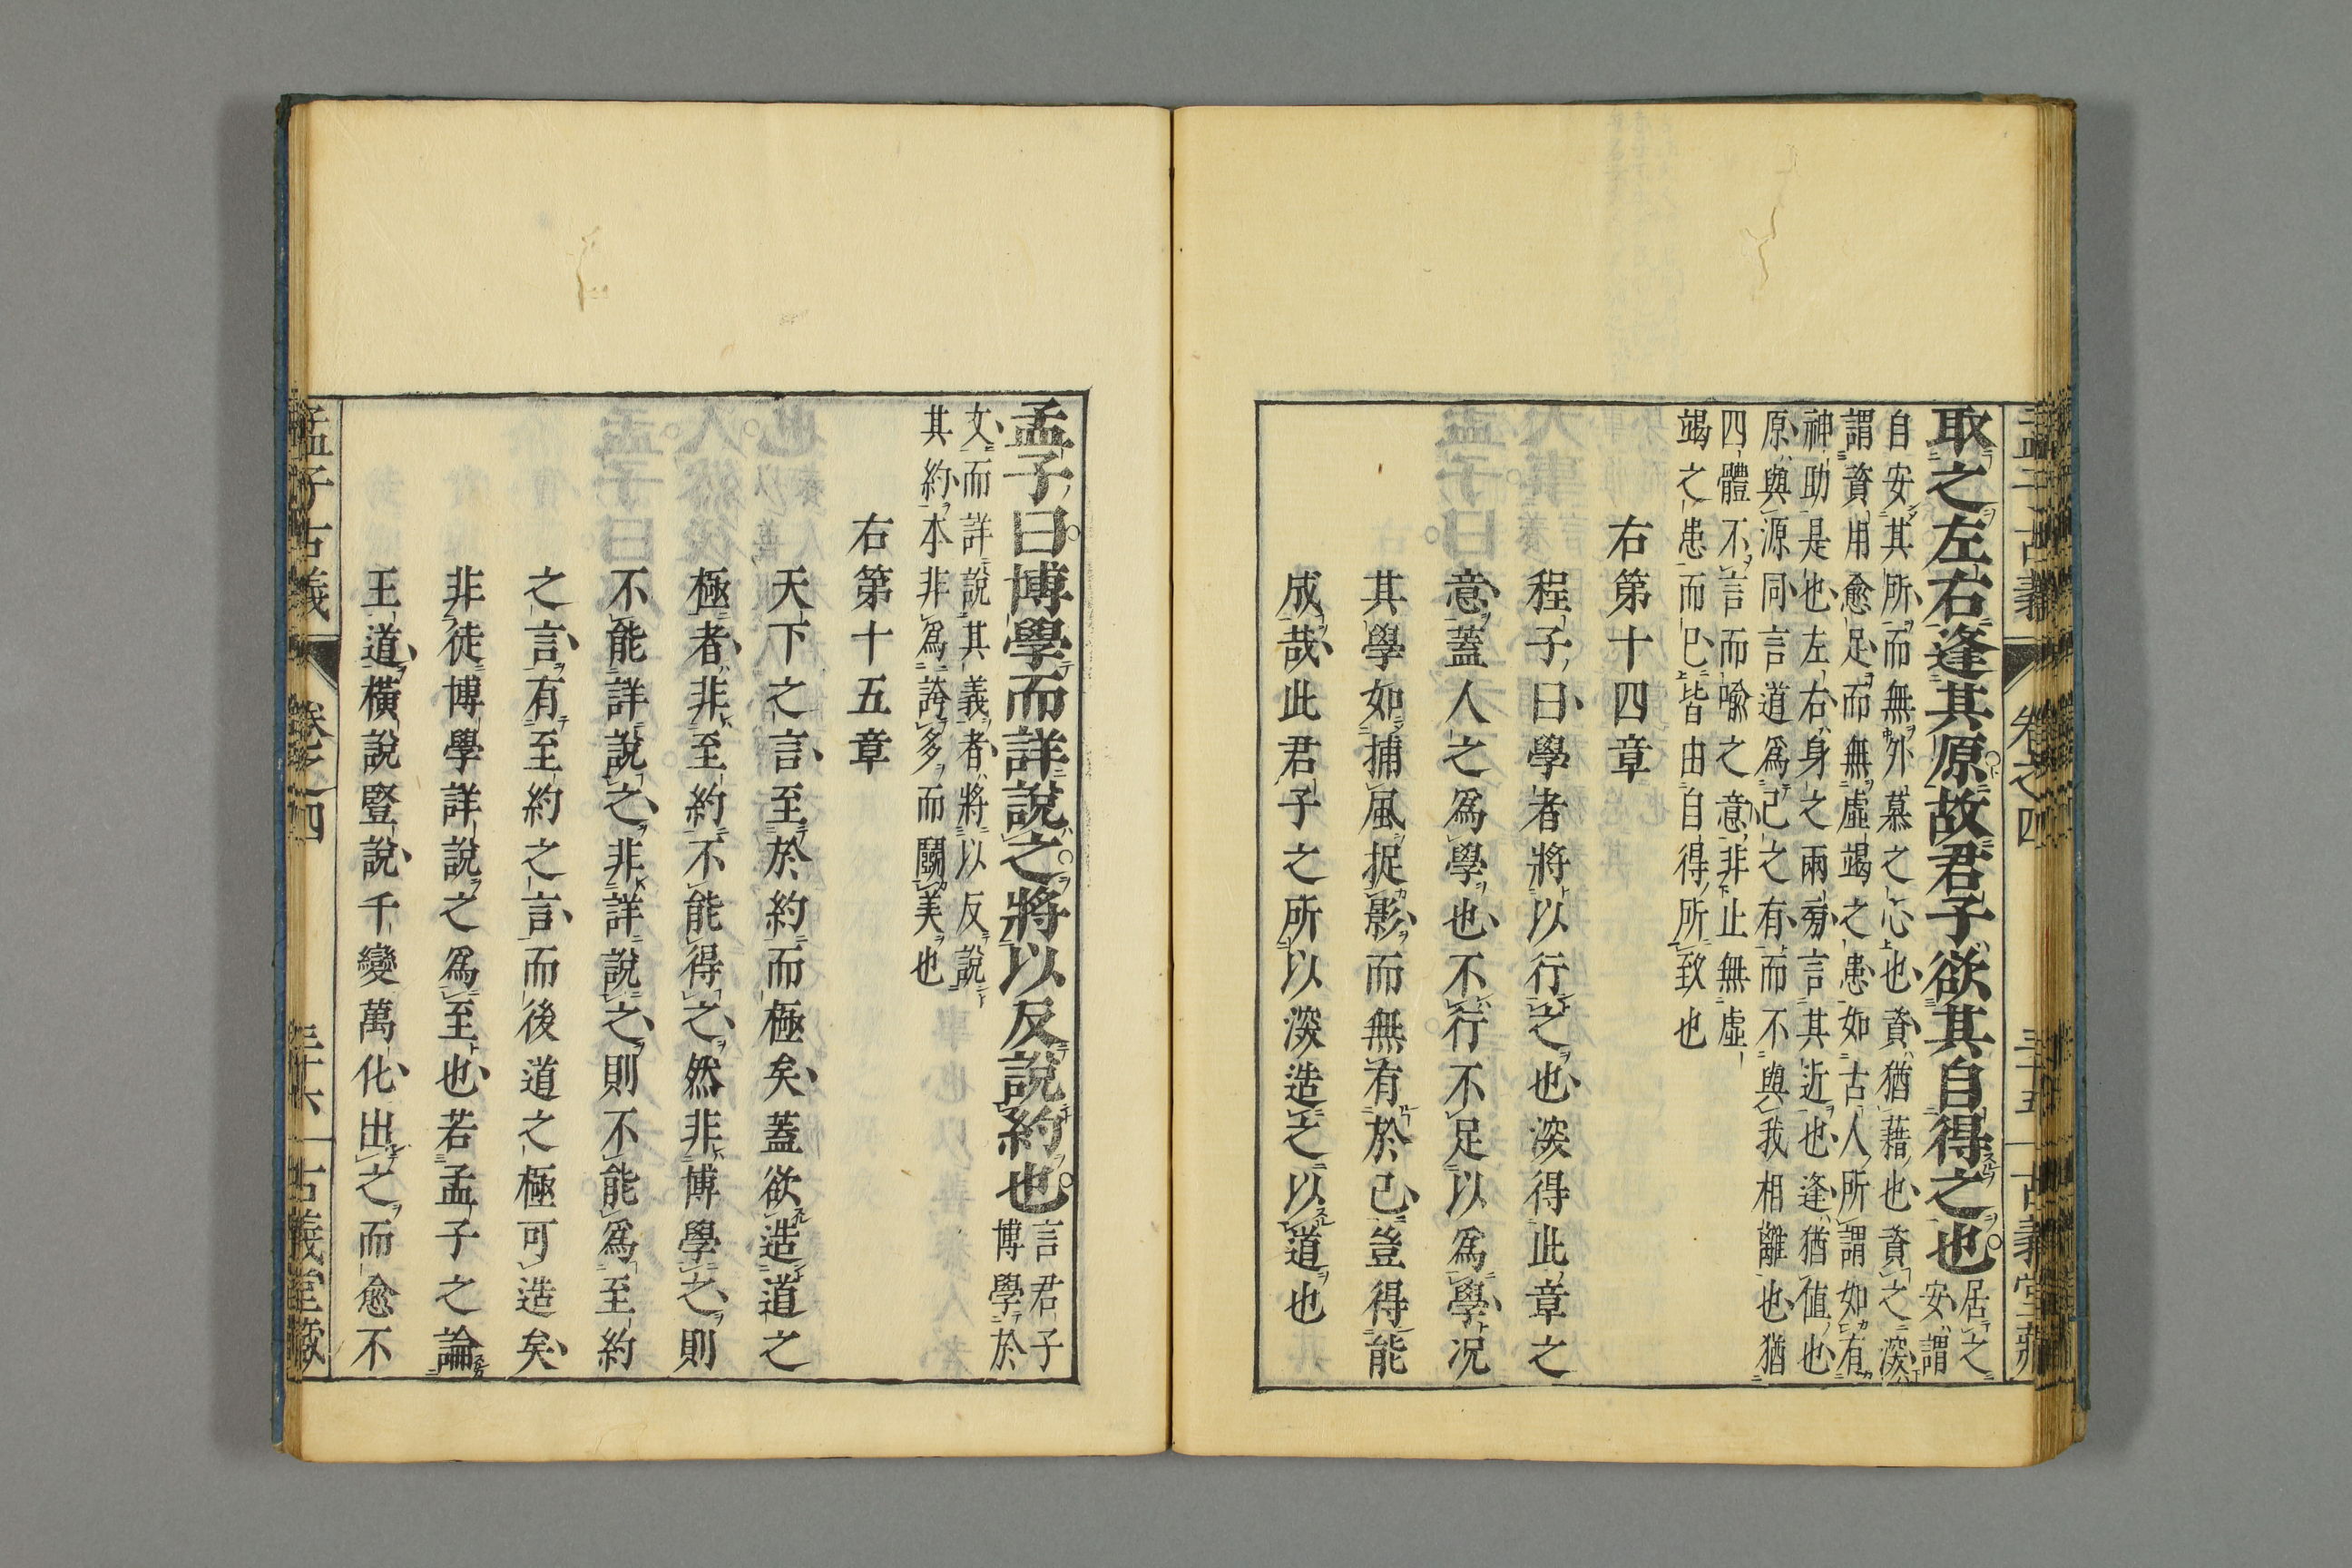 取之左右逢其原故君子欲其自得之也 居之
安謂
自安其所而無外慕之心也資猶藉也資之深
謂資用愈足而無虛竭之患如古人所謂如有
神助是也左右身之兩旁言其近也逢猶值也
原與源同言道爲己之有而不與我相離也猶
四體不言而喻之意非止無虛
竭之患而已皆由自得所致也
右第十四章
程子曰學者將以行之也深得此章之
意蓋人之爲學也不行不足以爲學況
其學如捕風捉影而無有於己豈得能
成哉此君子之所以深造之以道也
孟子曰博學而詳說之將以反說約也 言君子
博學於
文而詳說其義者將以反說
其約本非爲誇多而鬭美也
右第十五章
天下之言至於約而極矣蓋欲造道之
極者非至約不能得之然非博學之則
不能詳說之非詳說之則不能爲至約
之言有至約之言而後道之極可造矣
非徒博學詳說之爲至也若孟子之論
王道橫說豎說千變萬化出之而愈不
孟子古義 卷之四 三十六 古義堂藏